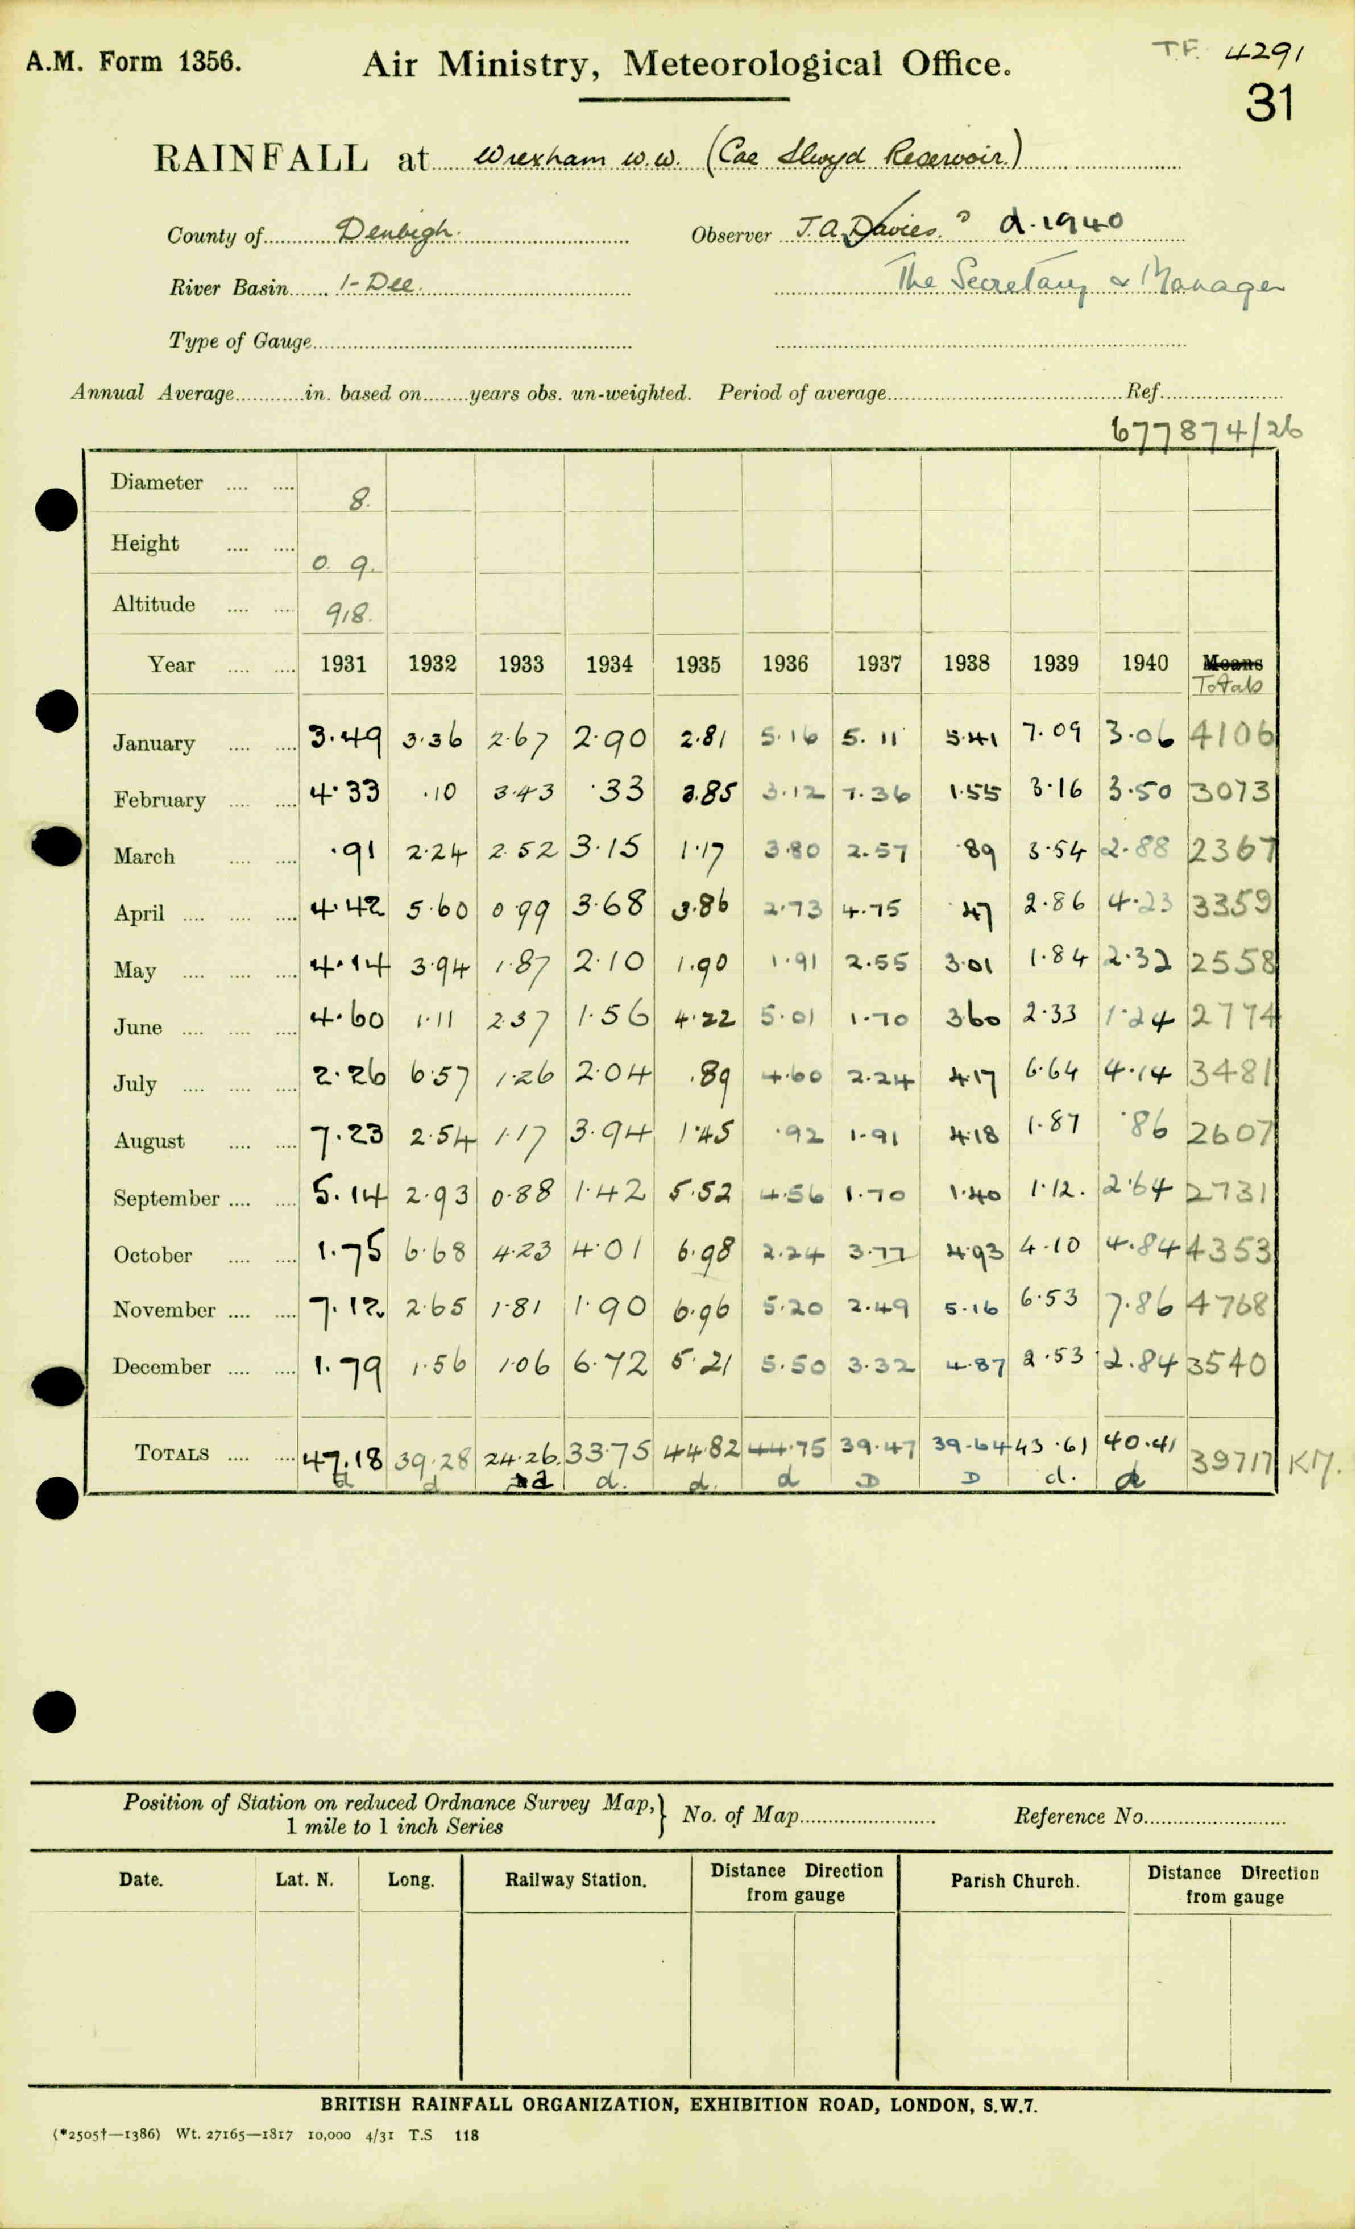 A.M. Form 1356.
Air Ministry, Meteorological Office.
T.F. 4291
31
RAINFALL at Wrexham W.W. (Cae Llwyd Reservoir)
County of Denbigh. Observer J.A. Davies d.1940
River Basin 1-Dee. The Secretary & Manager
Type of Gauge
Annual Average in. based on years obs. un-weighted. Period of average Ref.
677874/26
Diameter 8.
Height 0. 9.
Altitude 918.
Year 1931 1932 1933 1934 1935 1936 1937 1938 1939 1940 Means
Totals
January 3.49 3.36 2.67 2.90 2.81 5.16 5.11 5.41 7.09 3.06 4106
February 4.33 .10 3.43 .33 3.85 3.12 7.36 1.55 3.16 3.50 3073
March .91 2.24 2.52 3.15 1.17 3.80 2.57 .89 3.54 2.88 2367
April 4.42 5.60 0.99 3.68 3.86 2.73 4.75 .47 2.86 4.23 3359
May 4.14 3.94 1.87 2.10 1.90 1.91 2.55 3.01 1.84 2.32 2558
June 4.60 1.11 2.37 1.56 4.22 5.01 1.70 3.60 2.33 1.24 2774
July 2.26 6.57 1.26 2.04 .89 4.60 2.24 4.17 6.64 4.14 3481
August 7.23 2.54 1.17 3.94 1.45 .92 1.91 4.18 1.87 .86 2607
September 5.14 2.93 0.88 1.42 5.52 4.56 1.70 1.40 1.12. 2.64 2731
October 1.75 6.68 4.23 4.01 6.98 2.24 3.77 4.93 4.10 4.84 4353
November 7.12 2.65 1.81 1.90 6.96 5.20 2.49 5.16 6.53 7.86 4768
December 1.79 1.56 1.06 6.72 5.21 5.50 3.32 4.87 2.53 2.84 3540
TOTALS 47.18 39.28 24.26. 33.75 44.82 44.75 39.47 39.64 43.61 40.41 39717 KM.
d d d d. d. d D D d. d
Position of Station on reduced Ordnance Survey Map,} No. of Map Reference No.
1 mile to 1 inch Series
Date. Lat. N. Long. Railway Station. Distance Direction Parish Church. Distance Direction
from gauge from gauge
BRITISH RAINFALL ORGANIZATION, EXHIBITION ROAD, LONDON, S.W.7.
(*2505†—1386) Wt. 27165—1817 10,000 4/31 T.S 118